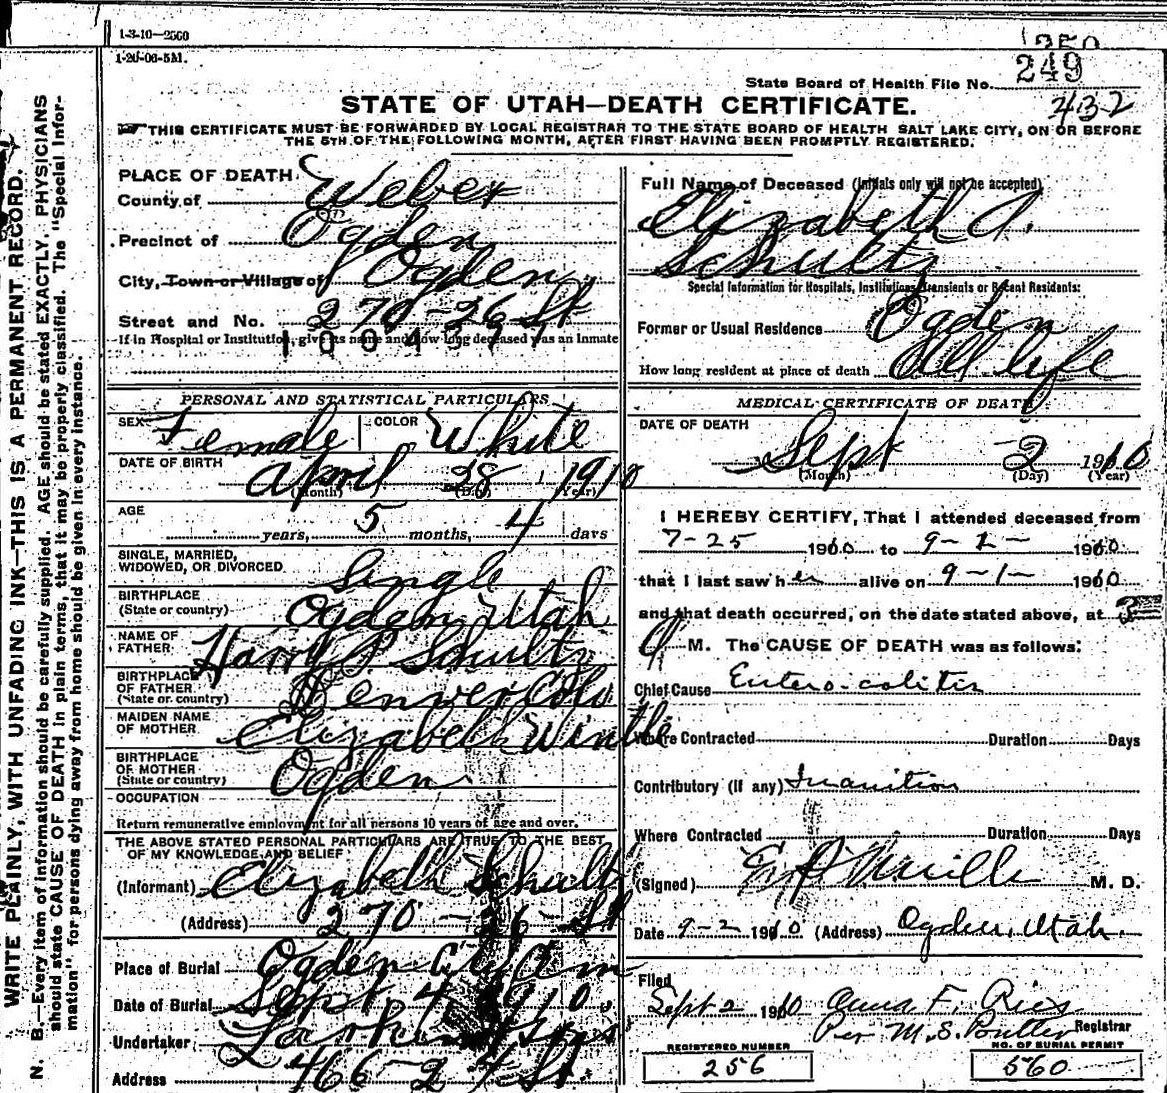 1-3-10—2500
1-20-06-5M.
1250
249
State Board of Health File No.
432
STATE OF UTAH—DEATH CERTIFICATE.
THIS CERTIFICATE MUST BE FORWARDED BY LOCAL REGISTRAR TO THE STATE BOARD OF HEALTH SALT LAKE CITY, ON OR BEFORE
THE 5TH OF THE FOLLOWING MONTH, AFTER FIRST HAVING BEEN PROMPTLY REGISTERED.
WRITE PLAINLY, WITH UNFADING INK—THIS IS A PERMANENT RECORD.
N. B.—Every item of information should be carefully supplied. AGE should be stated EXACTLY. PHYSICIANS
should state CAUSE OF DEATH in plain terms, that it may be properly classified. The "Special Infor-
mation" for persons dying away from home should be given in every instance.
PLACE OF DEATH
County of Weber
Precinct of Ogden
City, Town or Village of Ogden
Street and No. 270-26 St
If in Hospital or Institution, give its name and how long deceased was an Inmate
PERSONAL AND STATISTICAL PARTICULARS
SEX Female COLOR White
DATE OF BIRTH April 28 1910
(Month) (Day) (Year)
AGE
years, 5 months, 4 days
SINGLE, MARRIED,
WIDOWED, OR DIVORCED Single
BIRTHPLACE
(State or country) Ogden Utah
NAME OF
FATHER Harry P Schultz
BIRTHPLACE
OF FATHER
(State or country) Denver Colo
MAIDEN NAME
OF MOTHER Elizabeth Wintle
BIRTHPLACE
OF MOTHER
(State or country) Ogden
OCCUPATION
Return remunerative employment for all persons 10 years of age and over.
THE ABOVE STATED PERSONAL PARTICULARS ARE TRUE TO THE BEST
OF MY KNOWLEDGE AND BELIEF
(Informant) Elizabeth Schultz
(Address) 270-26 St
Place of Burial Ogden City Cem
Date of Burial Sept 4 1910
Undertaker Larkin & Sons
Address 466-24 St.
Full Name of Deceased (Initials only will not be accepted)
Elizabeth A.
Schultz
Special Information for Hospitals, Institutions, Transients or Recent Residents:
Former or Usual Residence Ogden
How long resident at place of death All life
MEDICAL CERTIFICATE OF DEATH
DATE OF DEATH
Sept 2 1910
(Month) (Day) (Year)
I HEREBY CERTIFY, That I attended deceased from
7-25 1910 to 9-2- 1910
that I last saw her alive on 9-1- 1910
and that death occurred, on the date stated above, at 3
a M. The CAUSE OF DEATH was as follows:
Chief Cause Entero-colitis
Where Contracted Duration Days
Contributory (if any) Inanition
Where Contracted Duration Days
(Signed) M. D.
Date 9-2 1910 (Address) Ogden, Utah.
Filed
Sept 2 1910
Per M. S. Butler Registrar
REGISTERED NUMBER
256
NO. OF BURIAL PERMIT
560